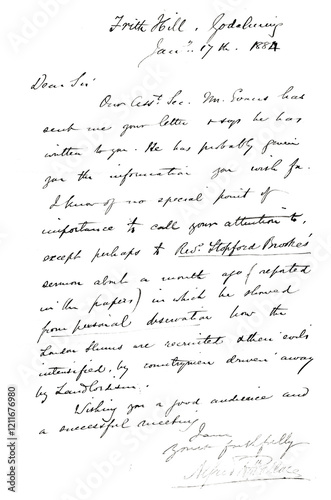 Frith Hill, Godalming
Jany. 17th. 1884
Dear Sir
Our Asst. Sec. Mr. Evans has
sent me your letter & says he has
written to you. He has probably given
you the information you wish for.
I know of no special point of
importance to call your attention to,
except perhaps to Revd. Stopford Brooke's
sermon about a month ago (reported
in the papers) in which he showed
from personal observation how the
London Slums are recruited & their evils
intensified, by countrymen driven away
by Landlordism.
Wishing you a good audience and
a successful meeting
I am
Yours faithfully
Alfred R. Wallace
Adobe Stock | #1211676980